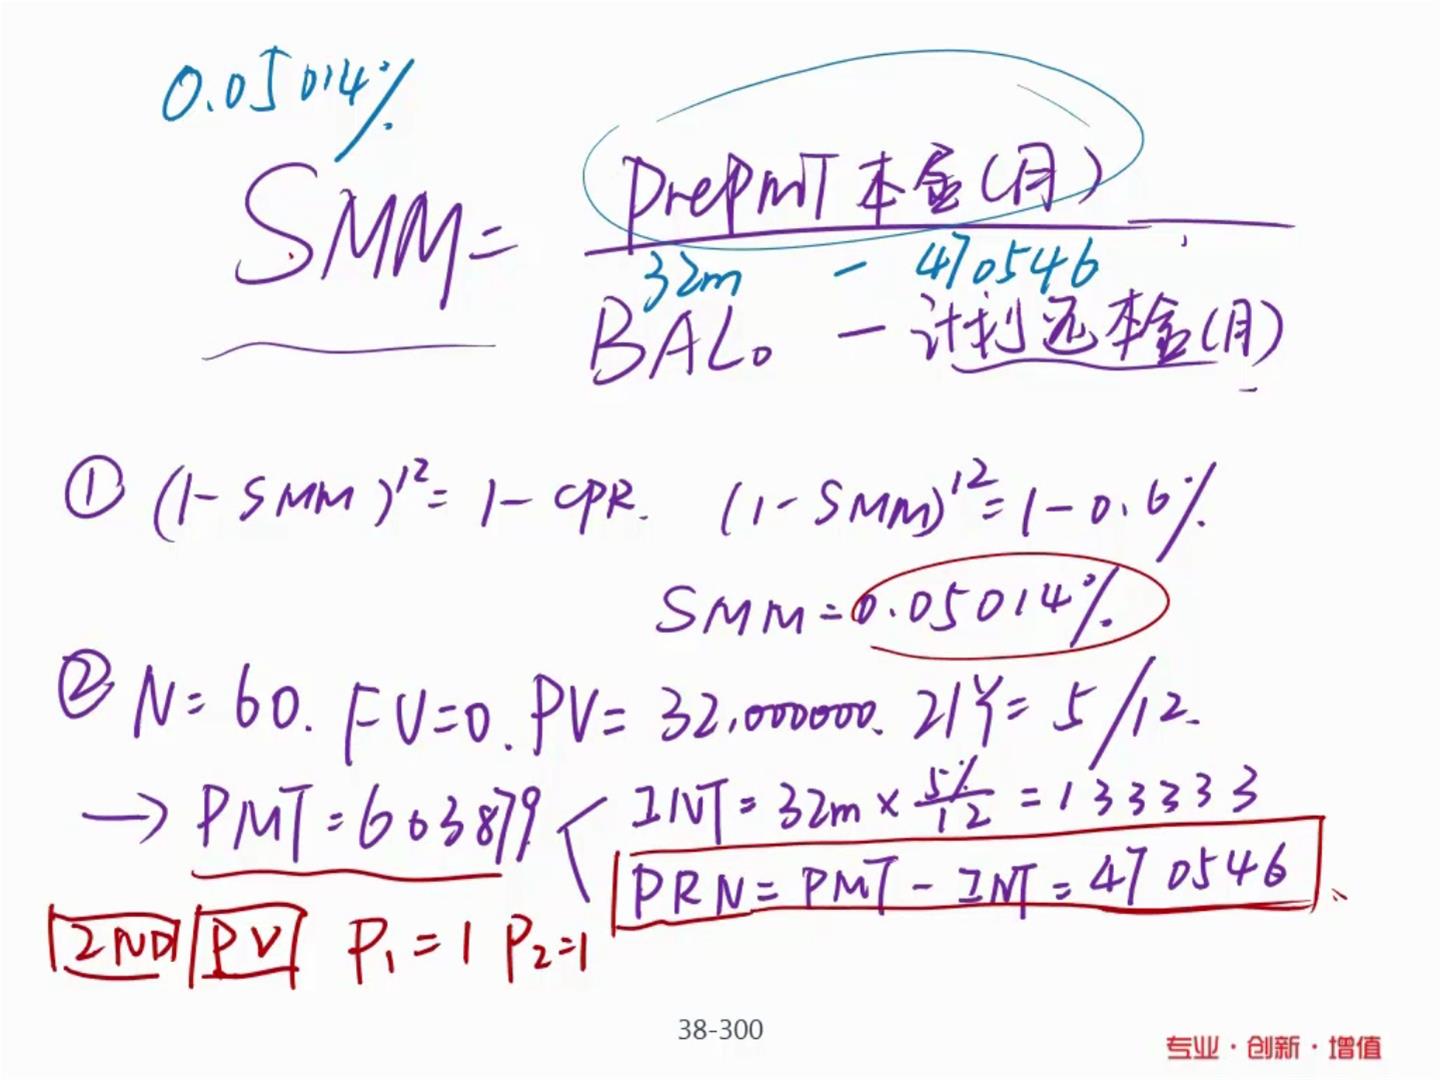 0.05014%
SMM = PrePMT本金(月)
32m - 470546
BAL0 - 计划还本金(月)
① (1-SMM)^12 = 1-CPR. (1-SMM)^12 = 1-0.6%
SMM = 0.05014%
② N=60. FV=0. PV=32,000000. I/Y=5/12.
→ PMT=603879 INT=32m×5%/12=133333
PRN=PMT-INT=470546
2ND PV P1=1 P2=1
38-300
专业·创新·增值